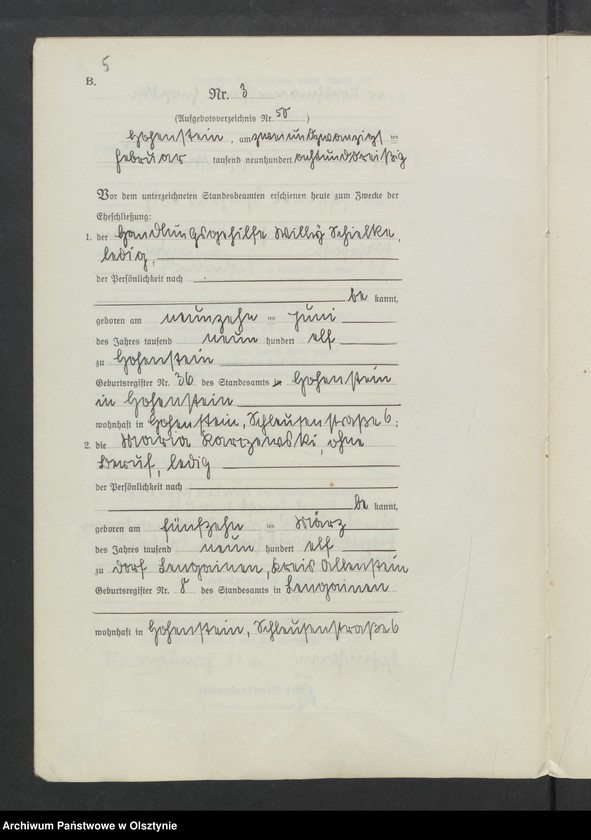 5
B.
Nr. 3
(Aufgebotsverzeichnis Nr. 50)
Hohenstein, am zweiundzwanzigs ten
Februar tausend neunhundert achtunddreißig
Vor dem unterzeichneten Standesbeamten erschienen heute zum Zwecke der
Eheschließung:
1. der Handlungsgehilfe Willy Schielke,
ledig,
der Persönlichkeit nach
be kannt,
geboren am neunzehn ten Juni
des Jahres tausend neun hundert elf
zu Hohenstein
Geburtsregister Nr. 36 des Standesamts in Hohenstein
in Hohenstein
wohnhaft in Hohenstein, Schleusenstraße 6;
2. die Maria Karczewski, ohne
Beruf, ledig
der Persönlichkeit nach
be kannt,
geboren am fünfzehn ten März
des Jahres tausend neun hundert elf
zu Dorf Lengainen, Kreis Allenstein
Geburtsregister Nr. 8 des Standesamts in Lengainen
wohnhaft in Hohenstein, Schleusenstraße 6
Archiwum Państwowe w Olsztynie